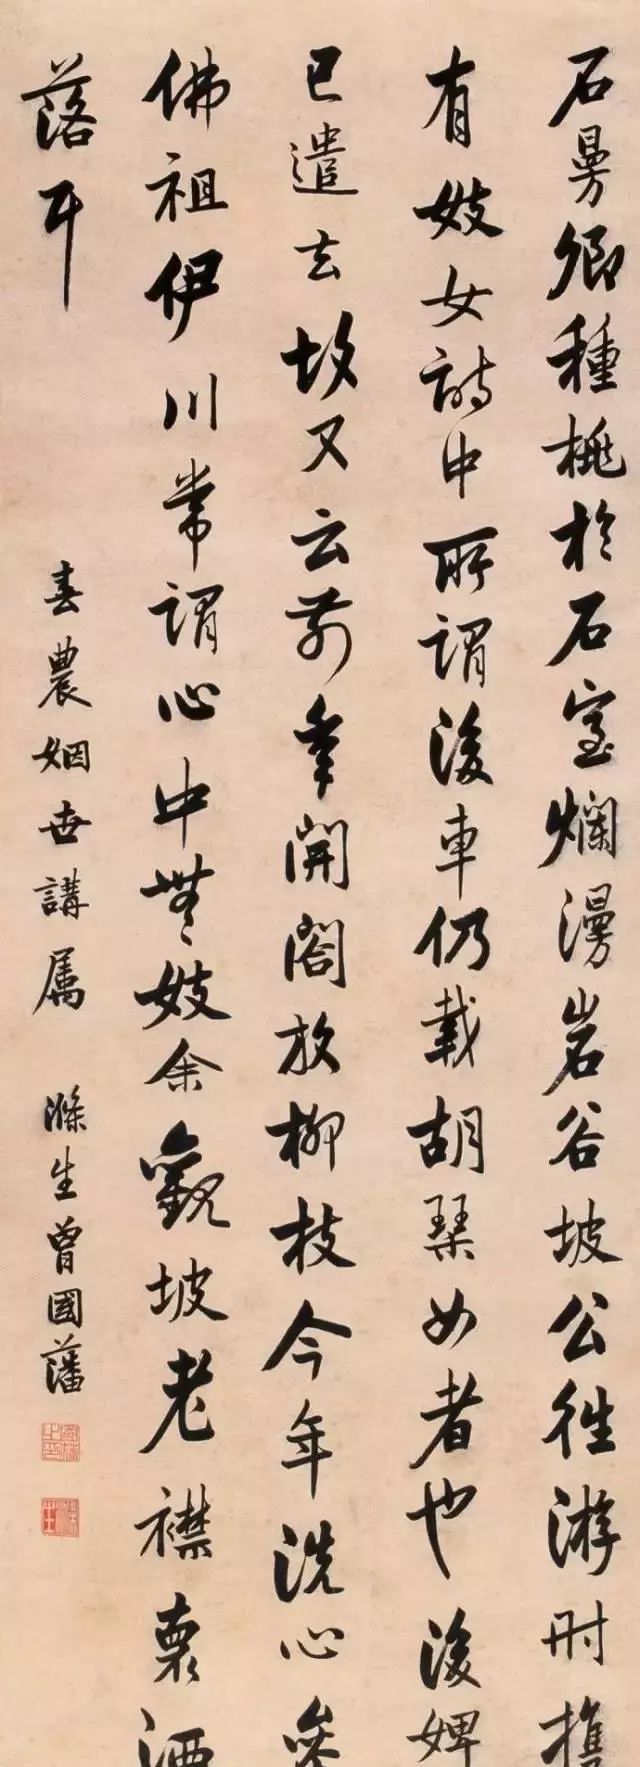 石曼卿種桃於石室爛漫岩谷坡公往游時攜
有妓女詩中所謂後車仍載胡琴女者也後婢
已遣去故又云前年開閤放柳枝今年洗心參
佛祖伊川常謂心中無妓余觀坡老襟褱洒
落耳
春農姻世講属 滌生曾國藩